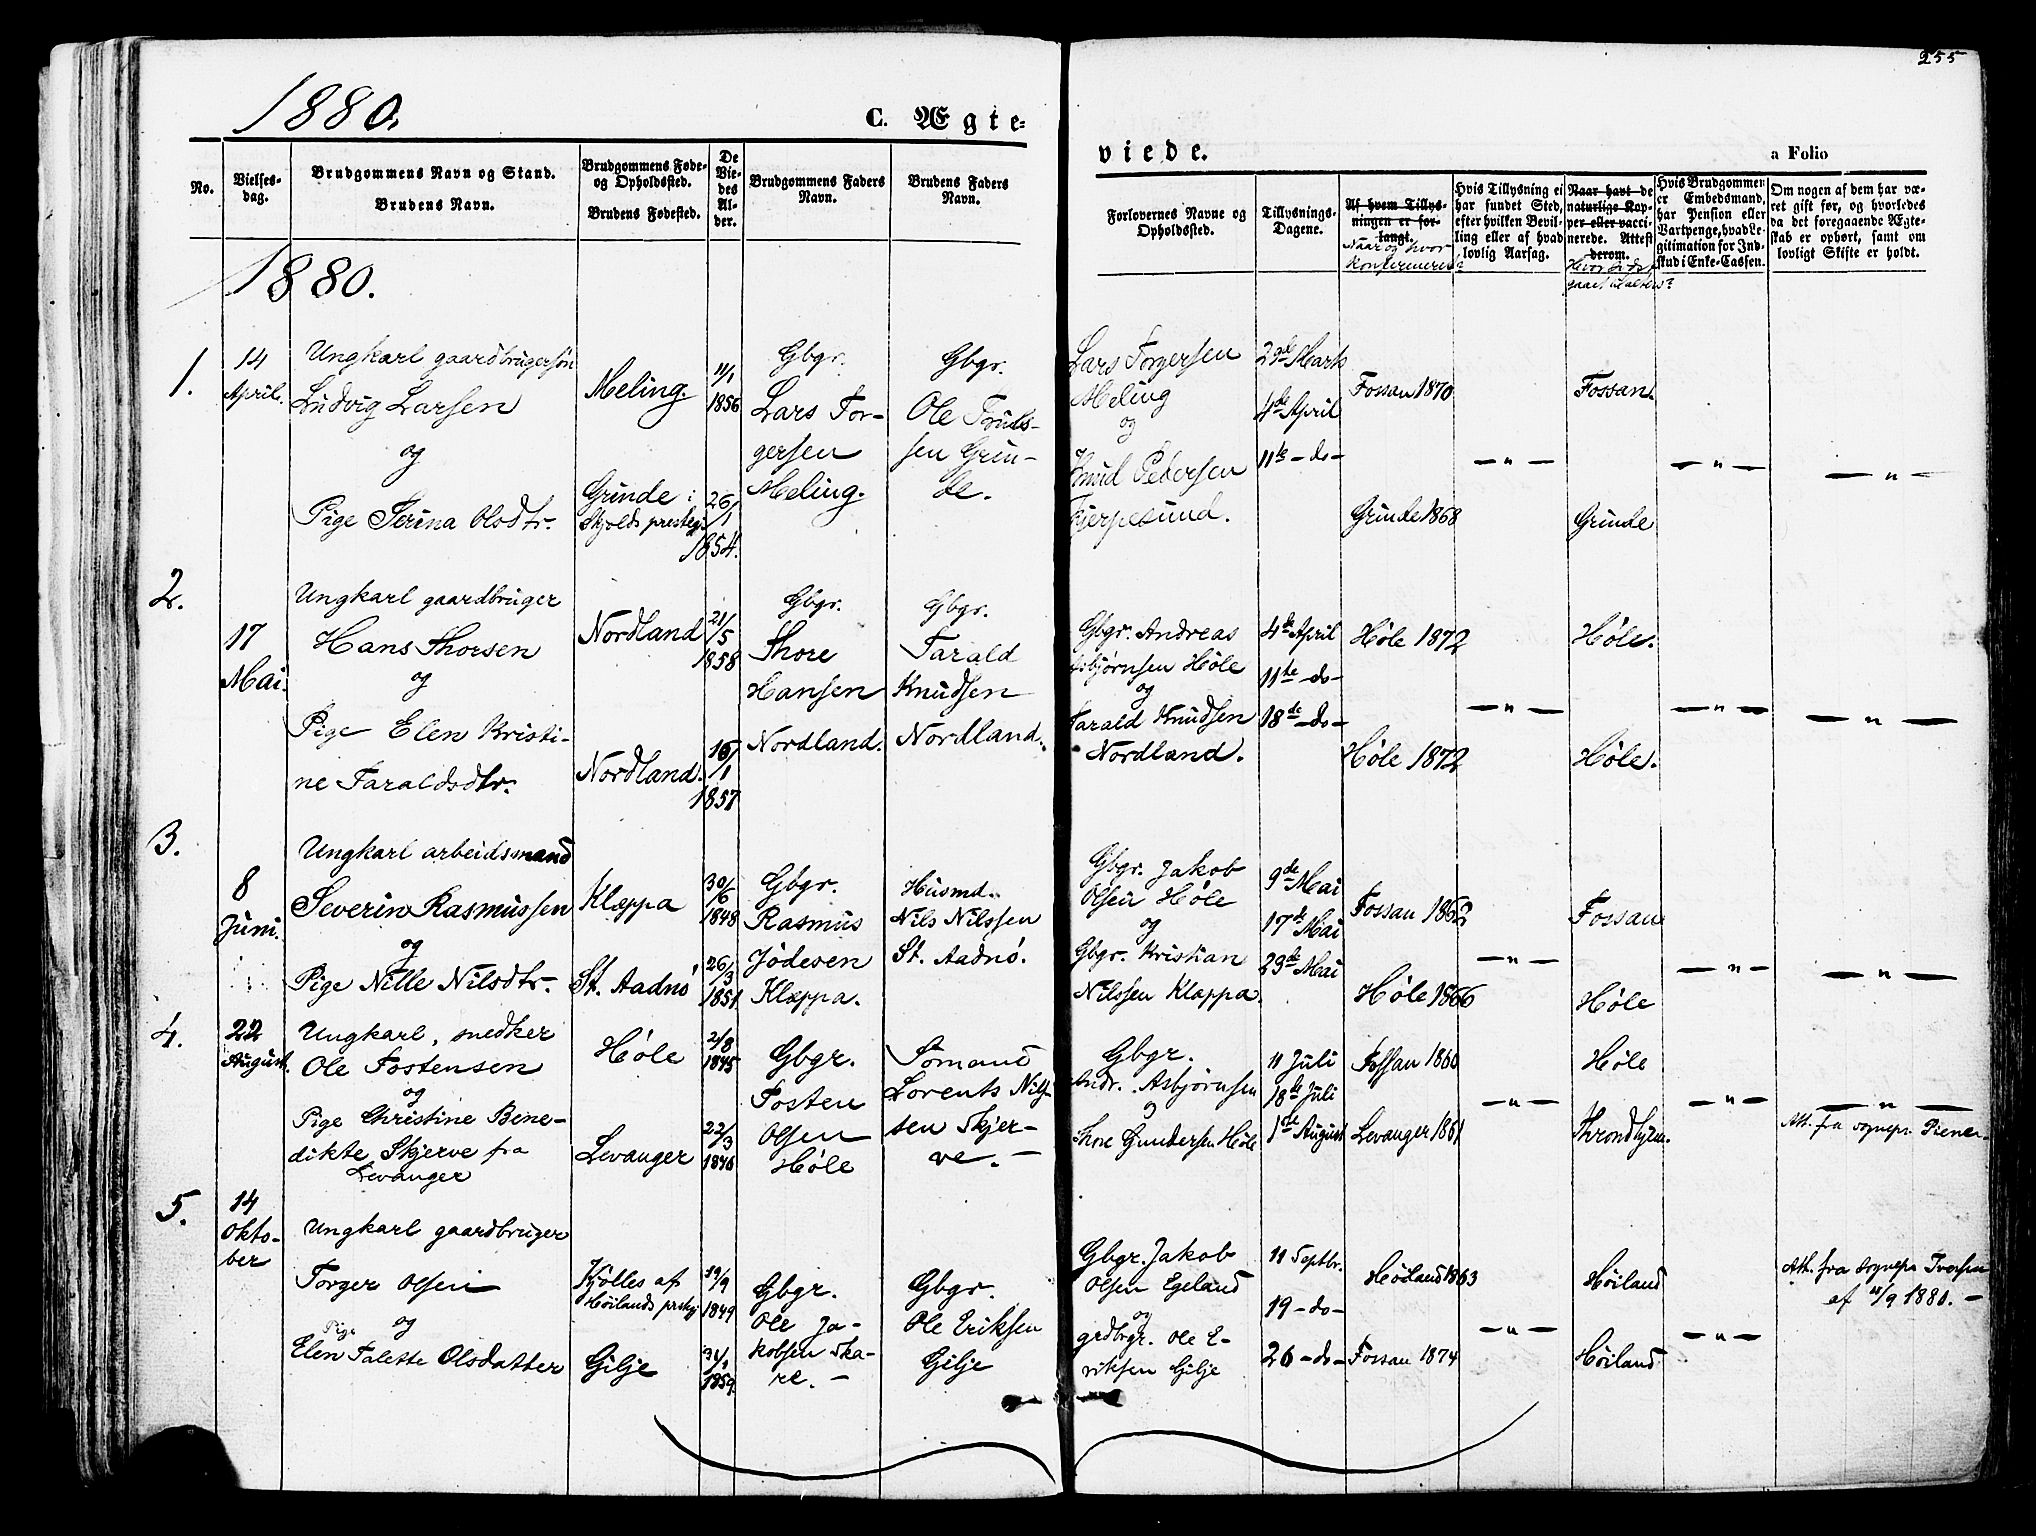 255
1880.
C. Ægte=
viede.
a Folio
No.
Vielses-
dag.
Brudgommens Navn og Stand.
Brudens Navn.
Brudgommens Føde-
og Opholdssted.
Brudens Fødested.
De
Vie-
des
Al-
der.
Brudgommens Faders
Navn.
Brudens Faders
Navn.
Forlovernes Navne og
Opholdssted.
Tillysnings-
Dagene.
Af hvem Tillys-
ningen er for-
langt.
Naar og hvor
konfirmeret?
Hvis Tillysning ei
har fundet Sted,
efter hvilken Bevil-
ling eller af hvad
lovlig Aarsag.
Naar havt de
naturlige Kop-
per eller vacci-
nerede. Attest
derom.
Hvis Brudgommen
er Embedsmand,
har Pension eller
Vartpenge, hvad Le-
gitimation for Ind-
skud i Enke-Cassen.
Om nogen af dem har væ-
ret gift før, og hvorledes
da det foregaaende Ægte-
skab er ophørt, samt om
lovligt Skifte er holdt.
1880.
1.
14
April.
Ungkarl gaardbrugersøn
Ludvig Larsen
og
Pige Serina Olsdtr.
Meling.
Grinde i
Skjolds prestegj.
11/1
1856
26/1
1854.
Gbgr.
Lars Tor-
gersen
Meling.
Gbgr.
Ole Truls-
sen Grin-
de.
Lars Torgersen
Meling
og
Knud Petersen
Tjerpesund.
29de Marts
4de April
11te - do -
Fossan 1870
Grinde 1868
— " —
Fossan.
Grinde
— " —
— " —
2.
17
Mai.
Ungkarl gaardbruger
Hans Thorsen
og
Pige Elen Kristi-
ne Taraldsdtr.
Nordland
Nordland.
21/5
1858
16/1
1857
Gbgr.
Thore
Hansen
Nordland.
Gbgr.
Tarald
Knudsen
Nordland.
Gbgr. Andreas
Asbjørnsen Høle
og
Tarald Knudsen
Nordland.
4de April
11te - do -
18de - do -
Høle 1872
Høle 1872
— " —
Høle.
Høle.
— " —
— " —
3.
8
Juni.
Ungkarl arbeidsmand
Severin Rasmussen
og
Pige Nille Nilsdtr.
Klæppa
St. Aadnø
30/6
1848
26/3
1851
Gbgr.
Rasmus
Jødesen
Klæppa.
Husmd.
Nils Nilssen
St. Aadnø.
Gbgr. Jakob
Olsen Høle
og
Gbgr. Kristian
Nilssen Klæppa.
9de Mai
17de Mai
23de Mai
Fossan 1862
Høle 1866
— " —
Fossan
Høle
— " —
— " —
4.
22
August.
Ungkarl, snedker
Ole Tostensen
og
Pige Christine Bene-
dikte Skjerve fra
Levanger
Høle
Levanger
2/8
1845
22/3
1846
Gbgr.
Tosten
Olsen
Høle
Sømand
Lorents Nils-
sen Skjer-
ve. —
Gbgr.
Andr. Asbjørnsen
og
Thore Gundersen Høle
11 Juli
18de Juli
1ste August
Fossan 1860
Levanger 1861
— " —
Høle
Throndhjem.
— " —
— " —
Att. fra sognepr.
5.
14
Okto-
ber
Ungkarl gaardbruger
Torger Olsen
og
Pige
Elen Talette Olsdatter
Kjølles af
Høilands prestgj
Gilje
19/9
1849
31/1
1859.
Gbgr.
Ole Ja-
kobsen Ska-
re. —
Gbgr.
Ole Eriksen
Gilje
Gbgr. Jakob
Olsen Egeland
og
grdbrgr. Ole E-
riksen Gilje
11 Septbr.
19 - do -
26 - do -
Høiland 1863
Fossan 1874
— " —
Høiland
Høiland
— " —
Att. fra sognepr. Iversen
af 11/9 1880. —